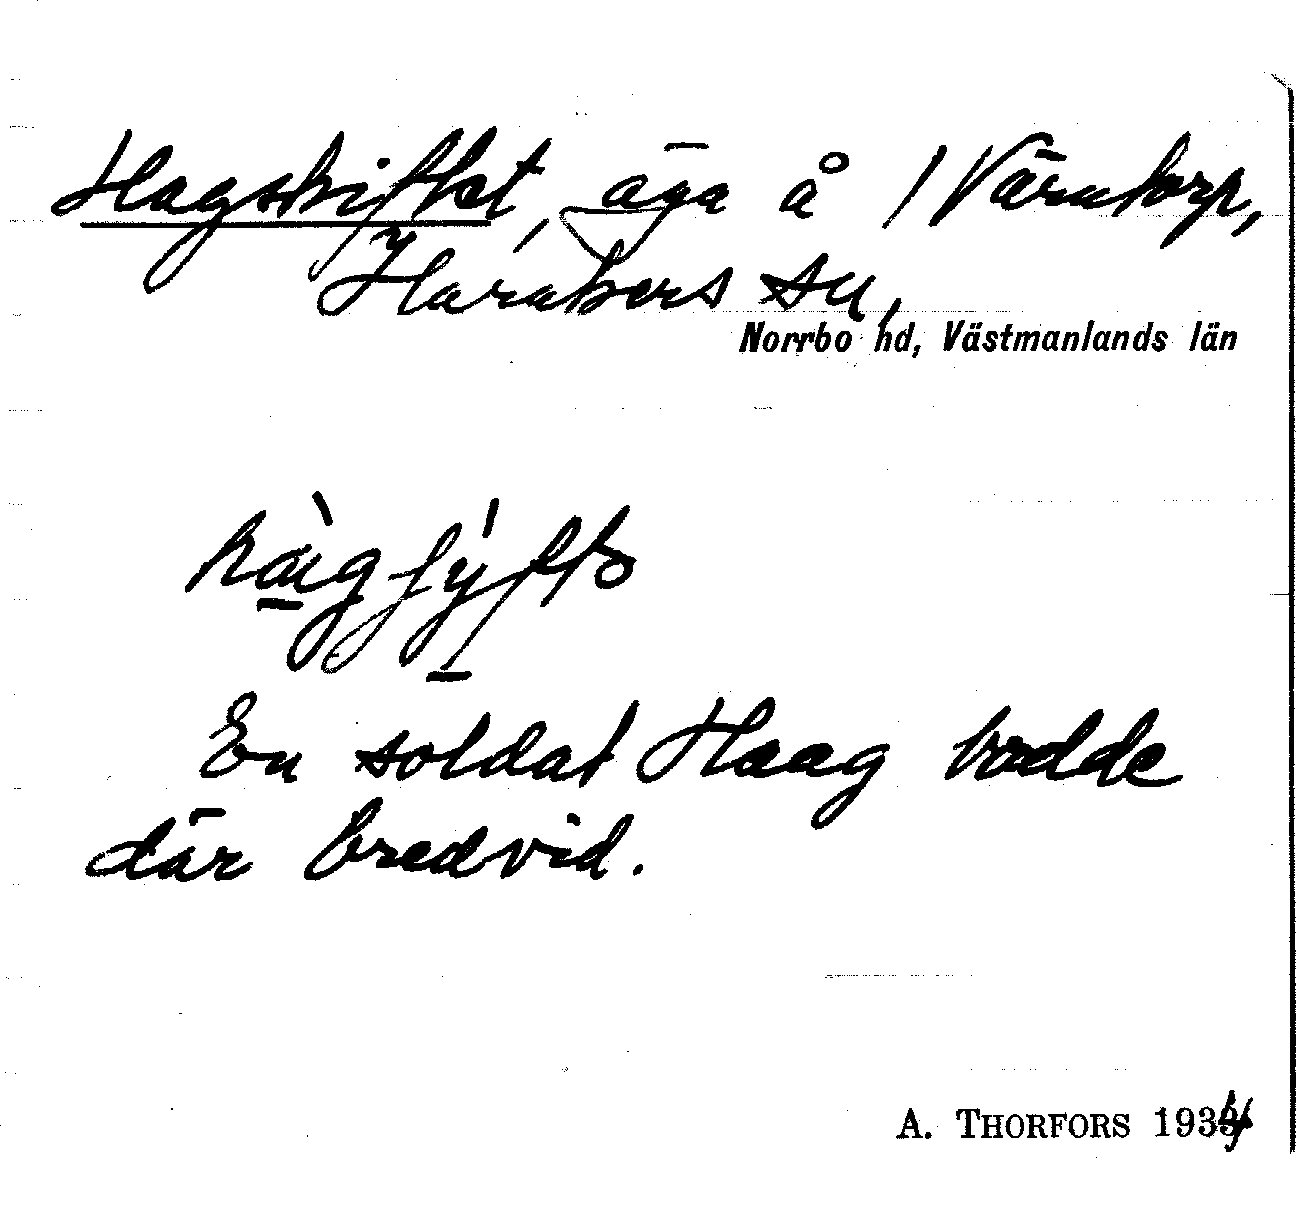 Hagskiftet, äga å 1 Värntorp,
Haraker s sn,
Norrbo hd, Västmanlands län
En soldat Haag bodde
där bredvid.
A. THORFORS 1934